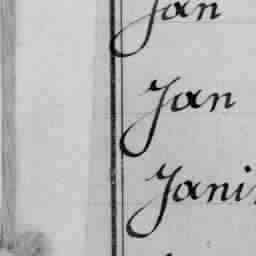 Jan
Jan
Jani